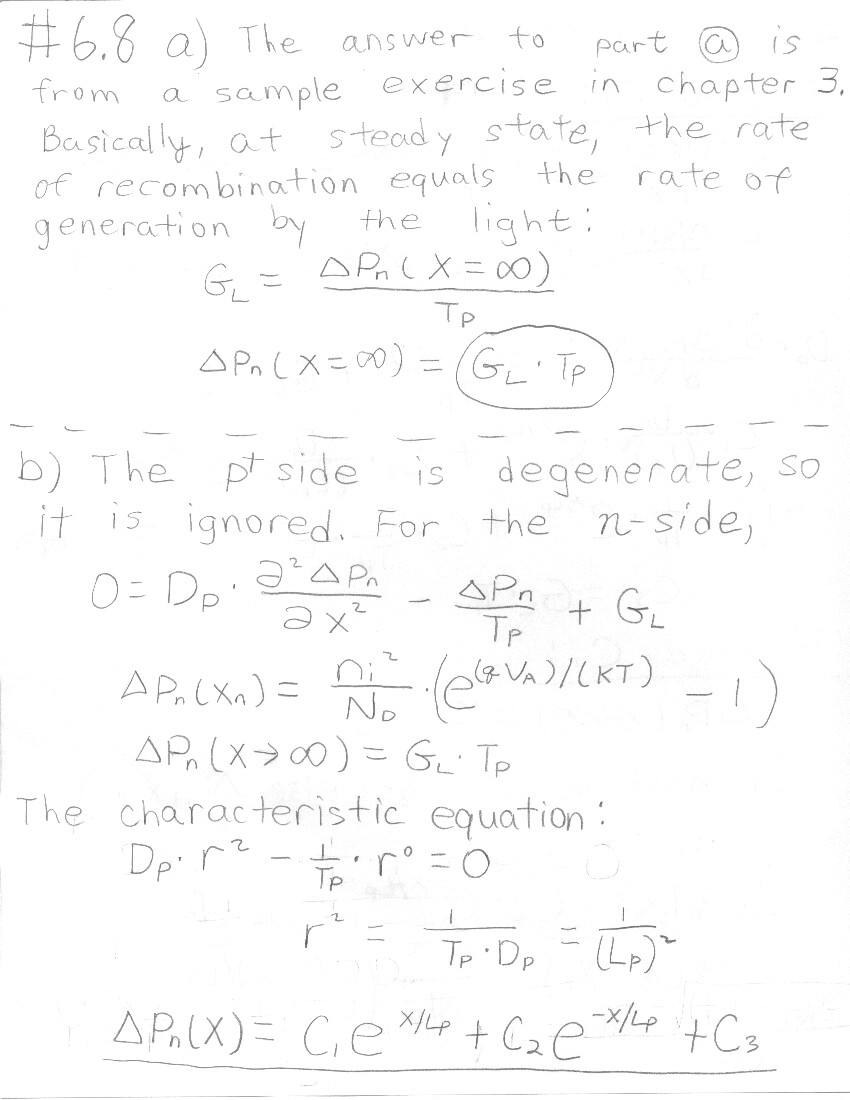 #6.8 a) The answer to part ⓐ is
from a sample exercise in chapter 3.
Basically, at steady state, the rate
of recombination equals the rate of
generation by the light:
G_L = ΔP_n(X=∞) / T_P
ΔP_n(X=∞) = G_L · T_P
b) The p⁺ side is degenerate, so
it is ignored. For the n-side,
0 = D_P · ∂²ΔP_n / ∂x² − ΔP_n / T_P + G_L
ΔP_n(x_n) = n_i² / N_D · (e^((qV_A)/(KT)) − 1)
ΔP_n(X→∞) = G_L · T_P
The characteristic equation:
D_P · r² − 1/T_P · r⁰ = 0
r² = 1 / (T_P · D_P) = 1 / (L_P)²
ΔP_n(X) = C₁e^(X/L_P) + C₂e^(−X/L_P) + C₃